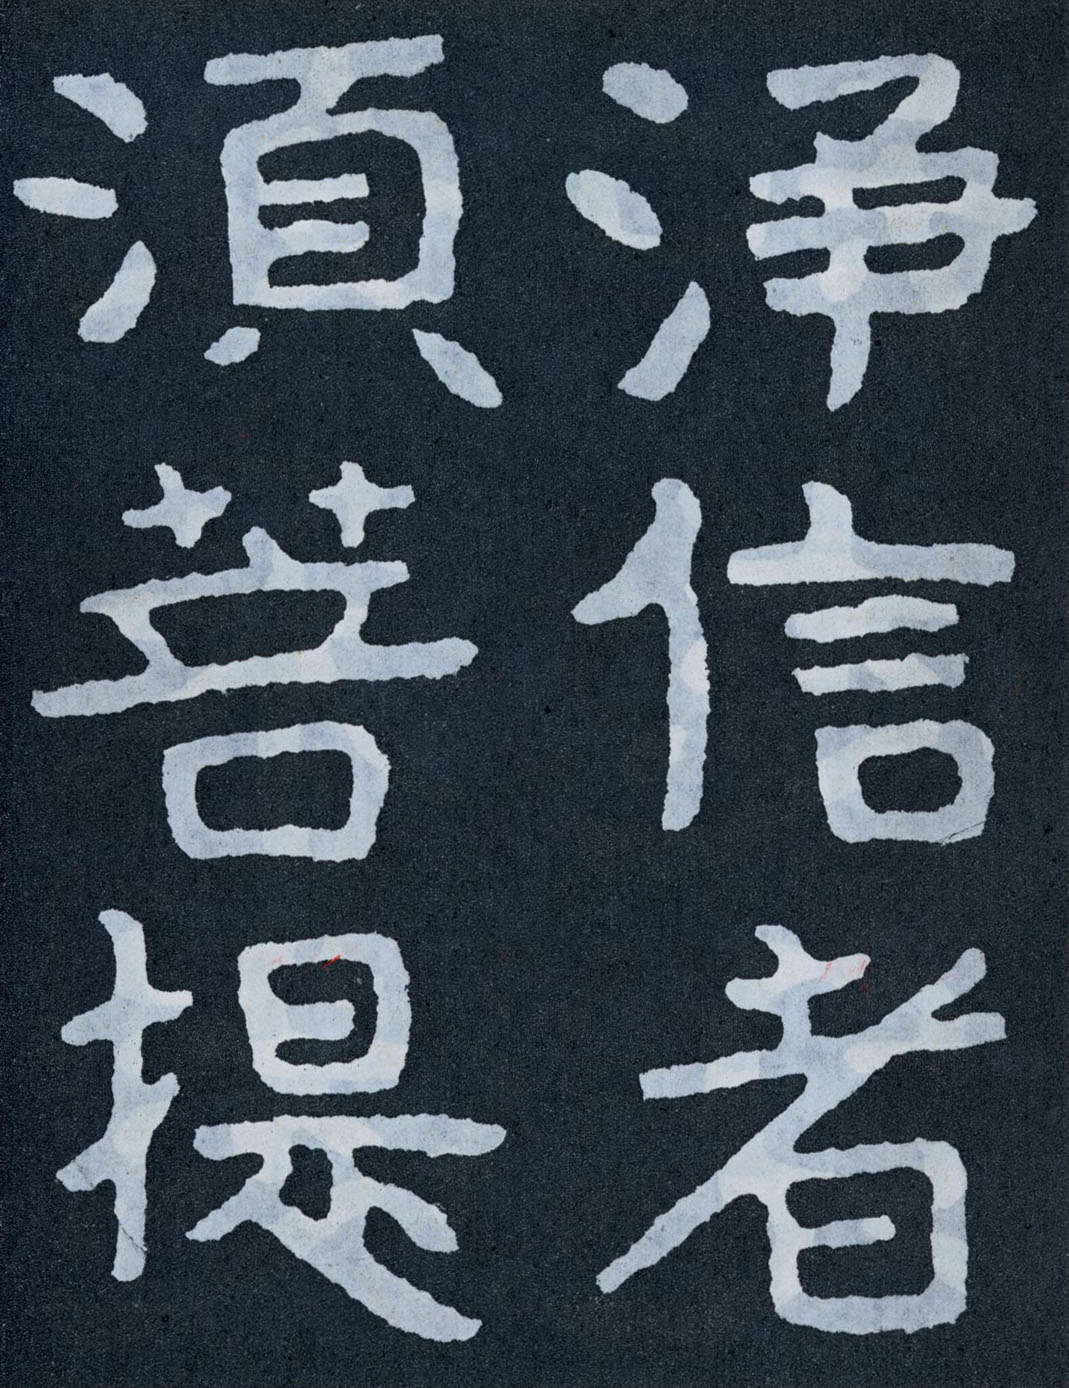 淨信者
湏菩提